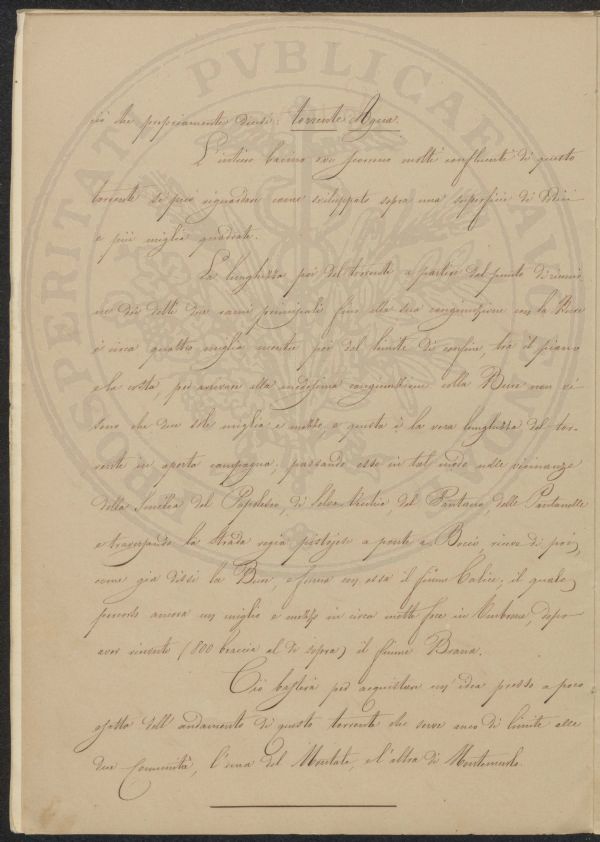 ciò che propriamente dicesi: torrente Agna.
L'intiero bacino ove scorrono molti confluenti di questo
torrente si può riguardare come sviluppato sopra una superficie di dodici
e più miglia quadrate.
La lunghezza poi del torrente a partire dal punto di riunio-
ne dei detti due rami principali fino alla sua congiunzione con la Bure
è circa quattro miglia mentre poi dal limite di confine, tra il piano
e la costa, per arrivare alla medesima congiunzione colla Bure non vi
sono che due sole miglia e mezzo, e questa è la vera lunghezza del tor-
rente in aperta campagna; passando esso in tal modo nelle vicinanze
della Smilea del Popolesco, di Selva Vecchia del Pantano, delle Pantanelle
e traversando la strada regia pistojese a ponte a Bocci, riceve di poi,
come già dissi la Bure, e forma con essa il fiume Calice; il quale
percorso ancora un miglio e mezzo in circa mette foce in Ombrone, dopo
aver ricevuto (800 braccia al di sopra) il fiume Brana.
Ciò basterà per acquistare un'idea presso a poco
esatta dell'andamento di questo torrente che serve anco di limite alle
due Comunità, l'una del Montale, e l'altra di Montemurlo.
PROSPERITATI PVBLICAE AVGENDAE